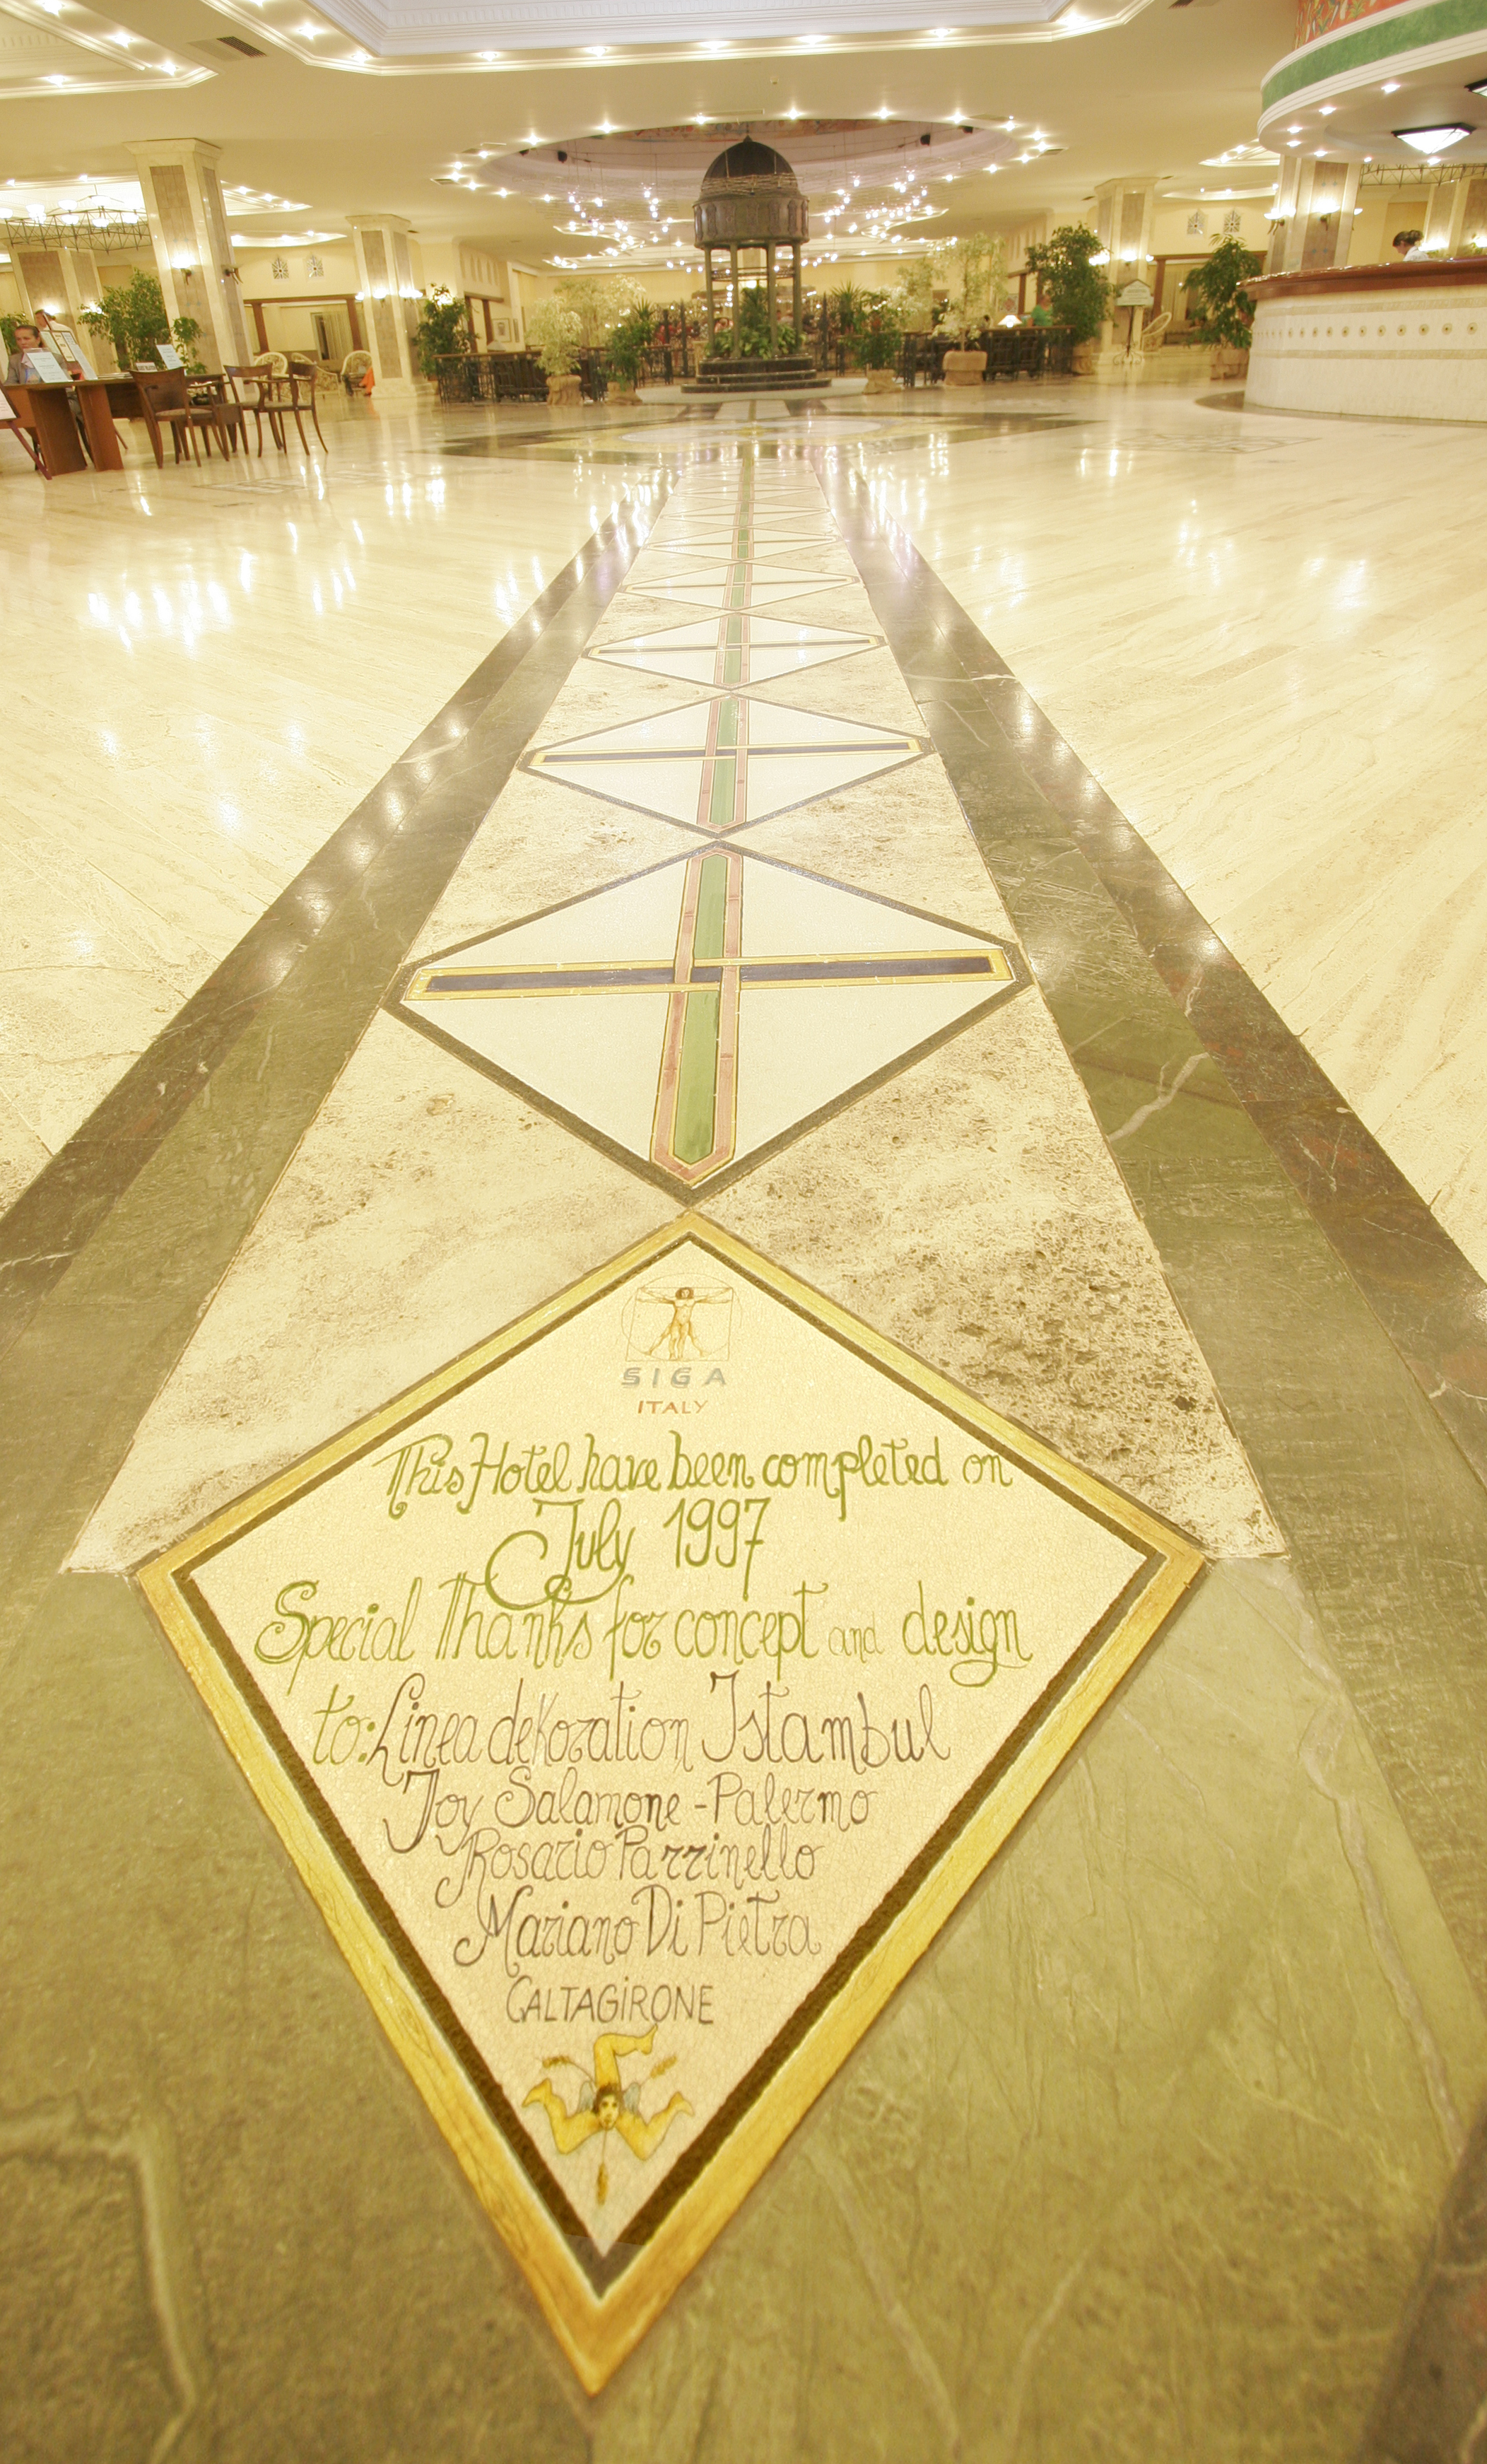 SIGA
ITALY
This Hotel have been completed on
July 1997
Special Thanks for concept and design
to: Linea dekoration Istambul
Joy Salamone - Palermo
Rosario Parrinello
Mariano Di Pietra
CALTAGIRONE